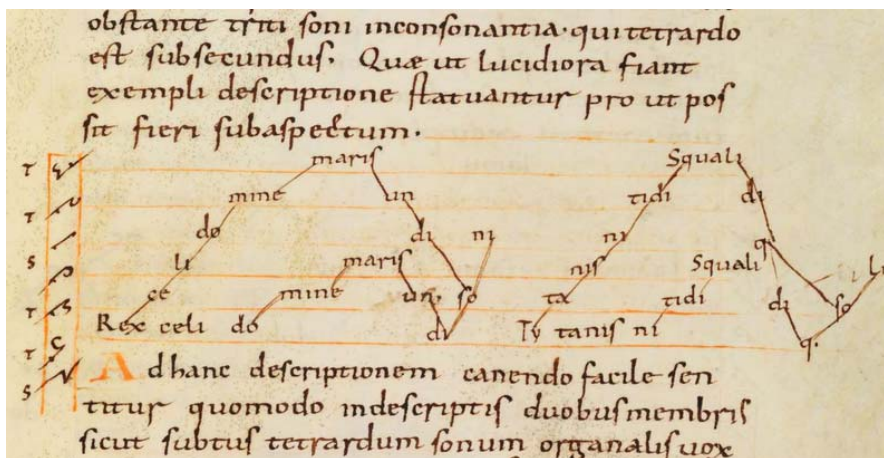 obstante triti soni inconsonantia· qui tetrardo
est subsecundus. Quæ ut lucidiora fiant
exempli descriptione statuantur pro ut pos
sit fieri subaspectum.
T maris Squali
T mine un tidi di
do di ni ni q
S li maris nis Squali li
T ce mine un so ta tidi di so
T Rex celi do di Ty tanis ni q.
T
S
Ad hanc descriptionem canendo facile sen
titur quomodo indescriptis duobus membris
sicut subtus tetrardum sonum organalis uox